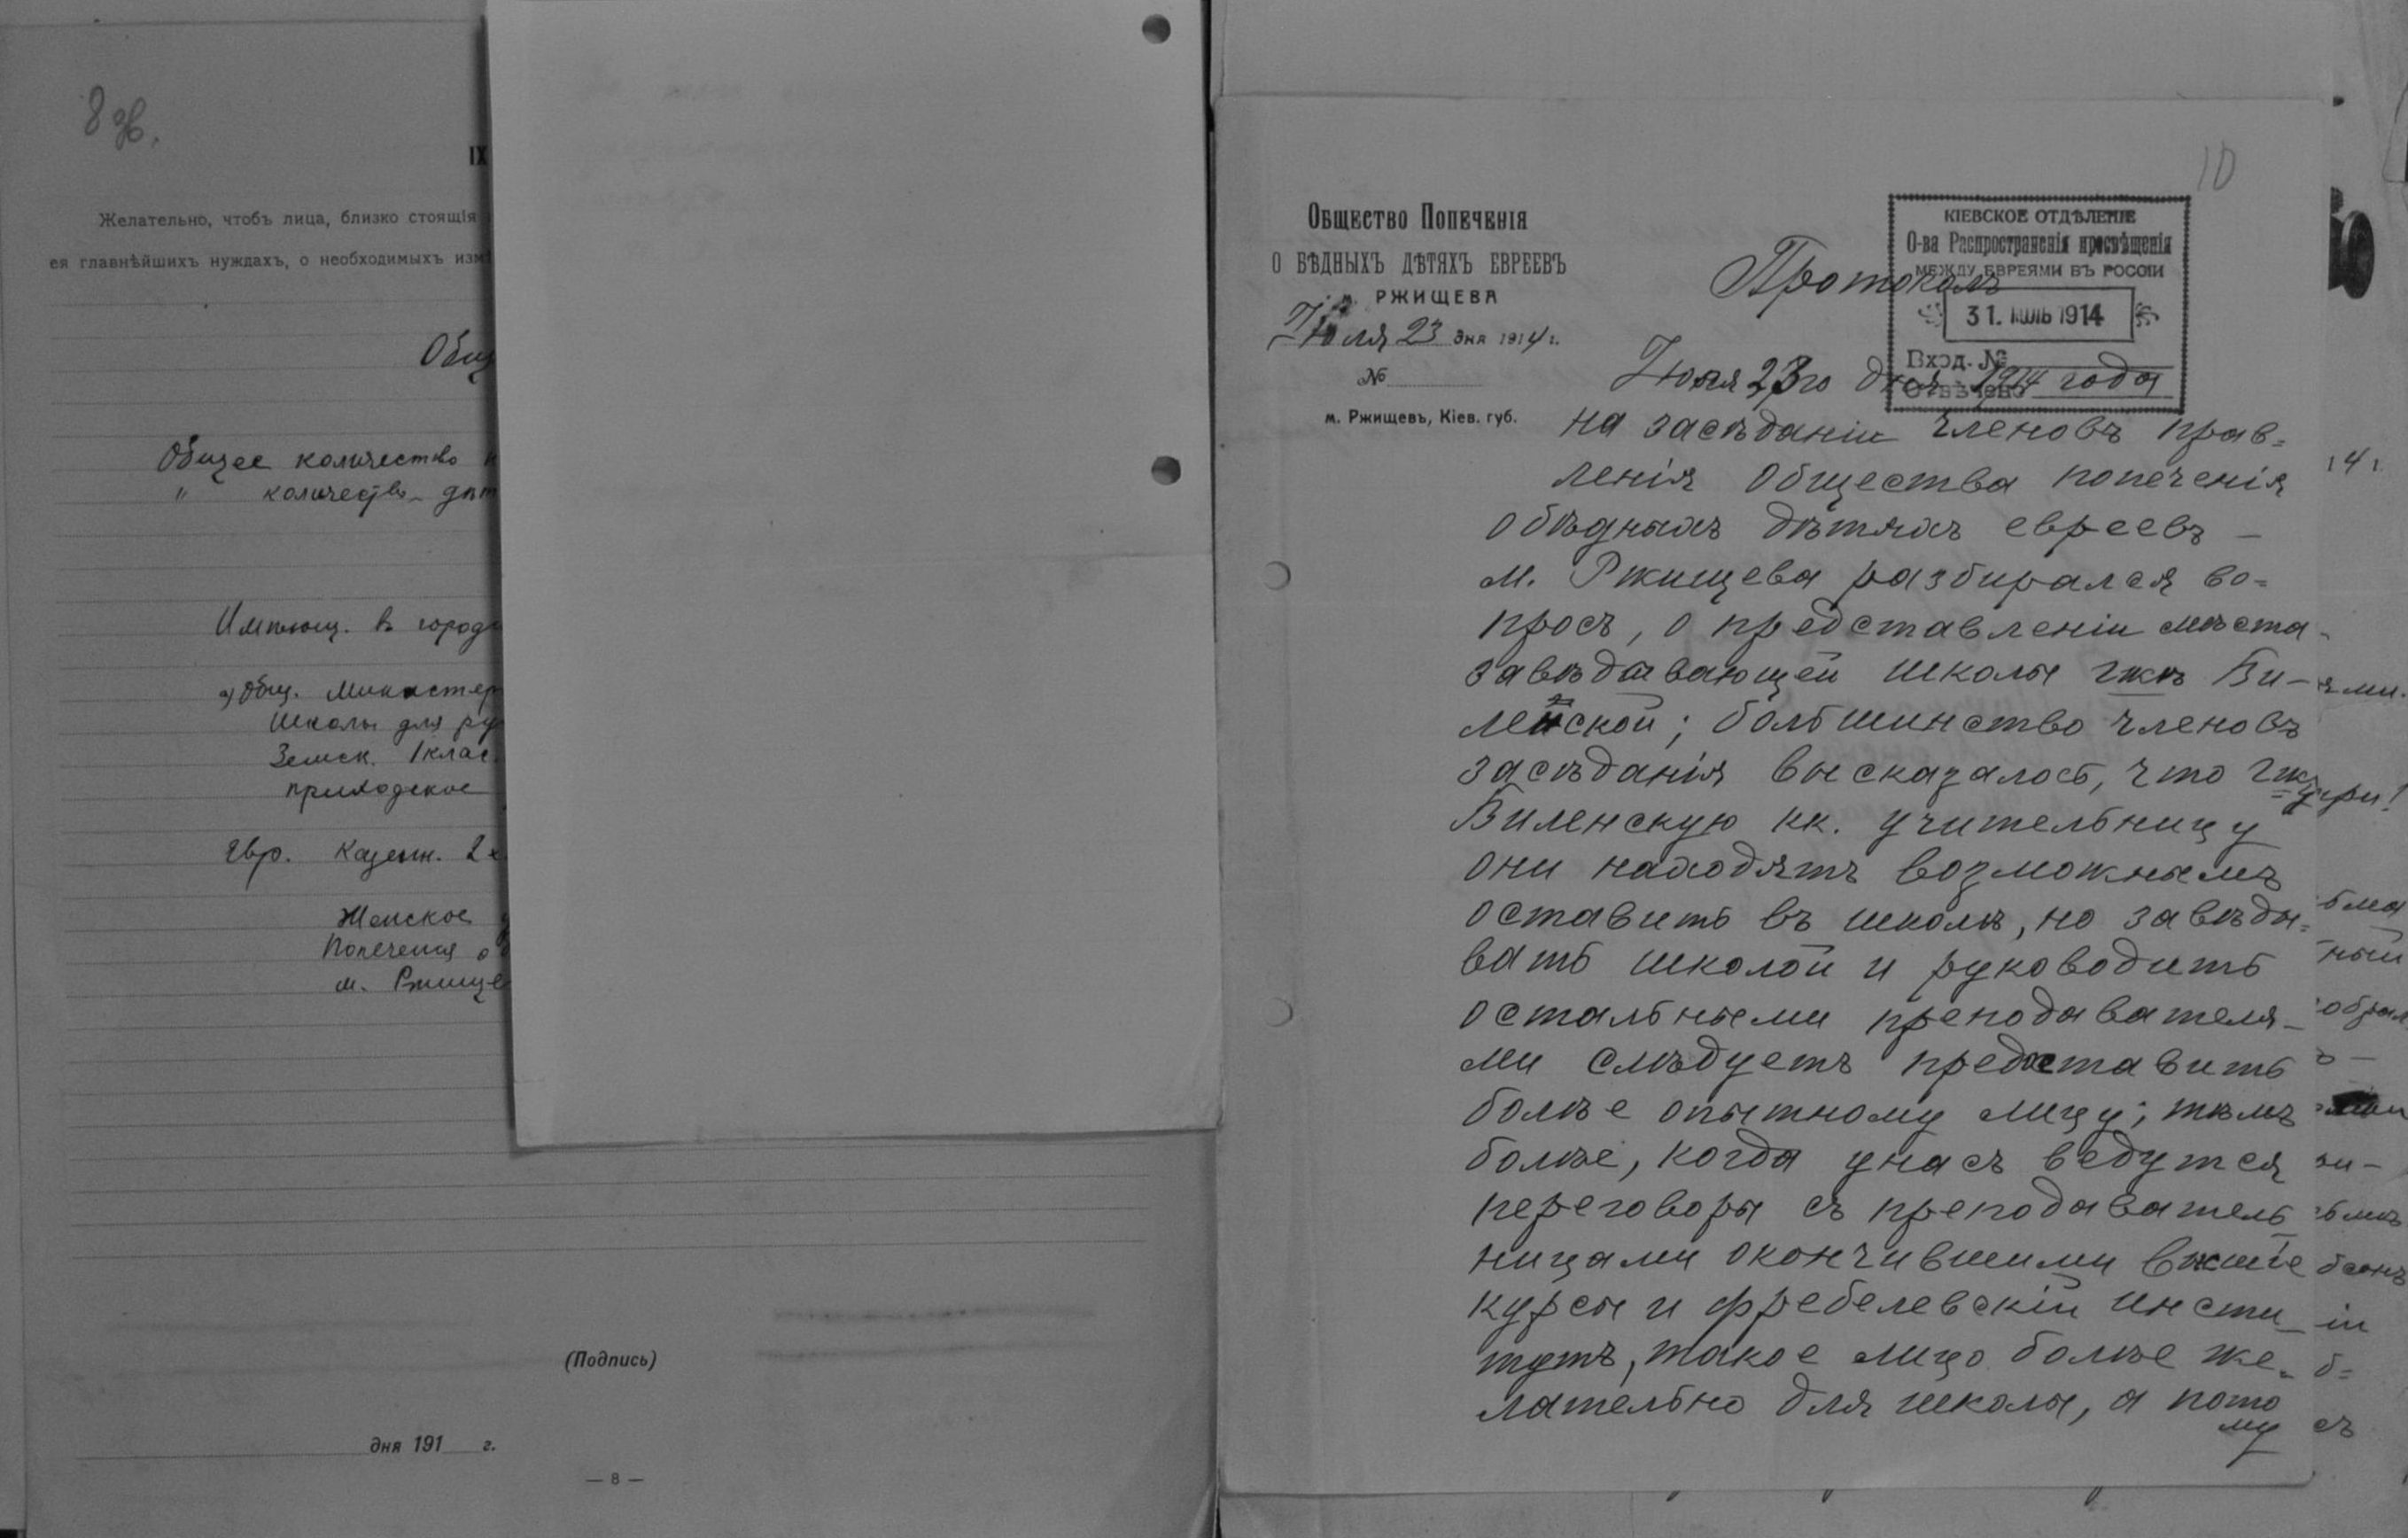 8 зв.
IX
Желательно, чтобъ лица, близко стоящія
ея главнѣйшихъ нуждахъ, о необходимыхъ изм
Общ
Общее количество
" количество дѣт
Имѣющ. въ город
а) общ. Министер
Школы для ру
Земск. 1 клас.
приходское
Евр. Казенн. 2
Женское
Попеченія о
м. Ржище
(Подпись)
дня 191 г.
— 8 —
10
Общество Попеченія
о бѣдныхъ дѣтяхъ евреевъ
м. РЖИЩЕВА
Іюля 23 дня 1914 г.
№
м. Ржищевъ, Кіев. губ.
КІЕВСКОЕ ОТДѢЛЕНІЕ
О-ва Распространенія просвѣщенія
МЕЖДУ ЕВРЕЯМИ ВЪ РОССІИ
31. ІЮЛЬ 1914
Вход. №
Отвѣчено
Протоколъ
Іюля 23го дня 1914 года
на засѣданіи членовъ прав=
ленія Общества попеченія
о бѣдныхъ дѣтяхъ евреевъ –
м. Ржищева разбирался во=
просъ, о представленіи мѣста
завѣдывающей школы гжѣ Ви-
ленской; большинство членовъ
засѣданія высказалось, что гжу
Виленскую кк. учительницу
они находятъ возможнымъ
оставить въ школѣ, но завѣды=
вать школой и руководить
остальными преподавателя-
ми слѣдуетъ предоставить
болѣе опытному лицу; тѣмъ
болѣе, когда у насъ ведутся
переговоры съ преподаватель
ницами окончившими высшіе
курсы и фребелевскій инсти-
тутъ, такое лицо болѣе же-
лательно для школы, а пото
му
14 г.